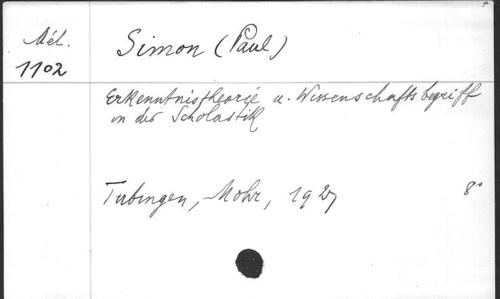 Mél.
1102
Simon (Paul)
Erkenntnistheorie u. Wissenschaftsbegriff
in der Scholastik
Tubingen, Mohr, 1927
8°